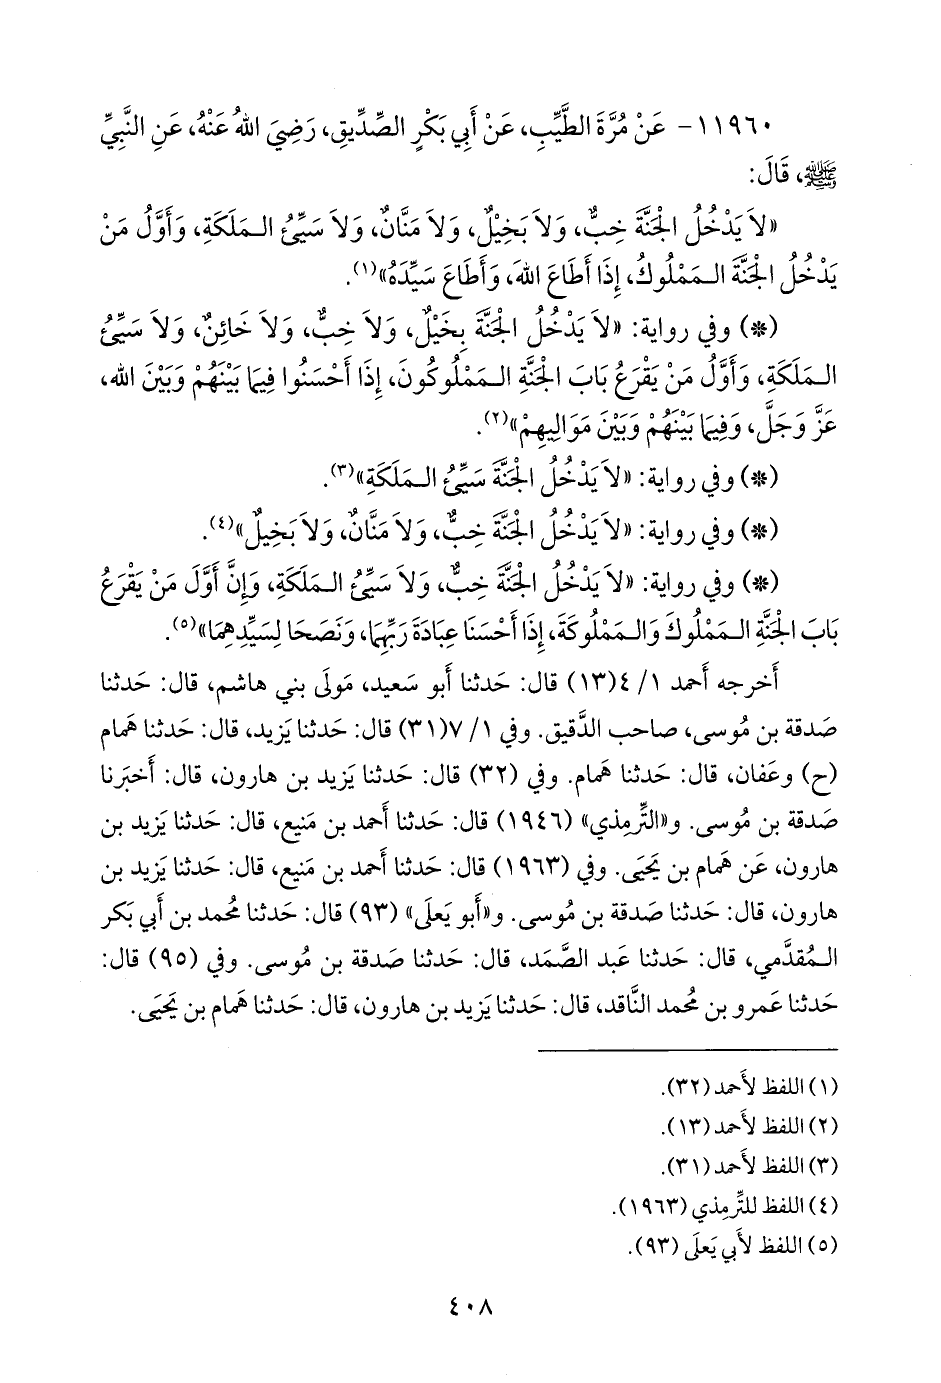 ١١٩٦٠- عَنْ مُرَّةَ الطَّيِّبِ، عَنْ أَبِي بَكْرٍ الصِّدِّيقِ، رَضِيَ اللهُ عَنْهُ، عَنِ النَّبِيِّ
ﷺ، قَالَ:
«لاَ يَدْخُلُ الْجَنَّةَ خِبٌّ، وَلاَ بَخِيلٌ، وَلاَ مَنَّانٌ، وَلاَ سَيِّئُ الـمَلَكَةِ، وَأَوَّلُ مَنْ
يَدْخُلُ الْجَنَّةَ الـمَمْلُوكُ، إِذَا أَطَاعَ اللهَ، وَأَطَاعَ سَيِّدَهُ»(١).
(*) وفي رواية: «لاَ يَدْخُلُ الْجَنَّةَ بَخِيْلٌ، وَلاَ خِبٌّ، وَلاَ خَائِنٌ، وَلاَ سَيِّئُ
الـمَلَكَةِ، وَأَوَّلُ مَنْ يَقْرَعُ بَابَ الْجَنَّةِ الـمَمْلُوكُونَ، إِذَا أَحْسَنُوا فِيمَا بَيْنَهُمْ وَبَيْنَ الله،
عَزَّ وَجَلَّ، وَفِيمَا بَيْنَهُمْ وَبَيْنَ مَوَالِيهِمْ»(٢).
(*) وفي رواية: «لاَ يَدْخُلُ الْجَنَّةَ سَيِّئُ الـمَلَكَةِ»(٣).
(*) وفي رواية: «لاَ يَدْخُلُ الْجَنَّةَ خِبٌّ، وَلاَ مَنَّانٌ، وَلاَ بَخِيلٌ»(٤).
(*) وفي رواية: «لاَ يَدْخُلُ الْجَنَّةَ خِبٌّ، وَلاَ سَيِّئُ الـمَلَكَةِ، وَإِنَّ أَوَّلَ مَنْ يَقْرَعُ
بَابَ الْجَنَّةِ الـمَمْلُوكَ وَالـمَمْلُوكَةَ، إِذَا أَحْسَنَا عِبَادَةَ رَبِّهِمَا، وَنَصَحَا لِسَيِّدِهِمَا»(٥).
أَخرجه أَحمد ١/ ٤(١٣) قال: حَدثنا أَبو سَعيد، مَولَى بني هاشم، قال: حَدثنا
صَدقة بن مُوسى، صاحب الدَّقيق. وفي ١/ ٧(٣١) قال: حَدثنا يَزيد، قال: حَدثنا هَمام
(ح) وعَفان، قال: حَدثنا هَمام. وفي (٣٢) قال: حَدثنا يَزيد بن هارون، قال: أَخبَرنا
صَدقة بن مُوسى. و«التِّرمِذي» (١٩٤٦) قال: حَدثنا أَحمد بن مَنيع، قال: حَدثنا يَزيد بن
هارون، عَن هَمام بن يَحيَى. وفي (١٩٦٣) قال: حَدثنا أَحمد بن مَنيع، قال: حَدثنا يَزيد بن
هارون، قال: حَدثنا صَدقة بن مُوسى. و«أَبو يَعلَى» (٩٣) قال: حَدثنا مُحمد بن أَبي بَكر
الـمُقدَّمي، قال: حَدثنا عَبد الصَّمَد، قال: حَدثنا صَدقة بن مُوسى. وفي (٩٥) قال:
حَدثنا عَمرو بن مُحمد النَّاقد، قال: حَدثنا يَزيد بن هارون، قال: حَدثنا هَمام بن يَحيَى.
(١) اللفظ لأَحمد (٣٢).
(٢) اللفظ لأَحمد (١٣).
(٣) اللفظ لأَحمد (٣١).
(٤) اللفظ للتِّرمِذي (١٩٦٣).
(٥) اللفظ لأَبي يَعلَى (٩٣).
٤٠٨